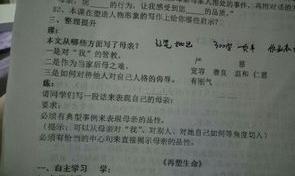 的行为,让我感受到您
的品质。
82. 本课在塑造人物形象的写作上给你哪些启示?
三、整理提升
理:
本文从哪些方面写了母亲?
一是对“我”的管教。 严 慈
二是作为当家后母之难。 宽容 善良 温和 仁慈
三是如何对待他人对自己人格的侮辱。 有刚气
练:
请同学们写一段话来表现自己的母亲:
要求:
必须有典型事例来表现母亲的品性。
(提示:可以从母亲对“我”、对别人、对她自己如何等角度切入)
必须有恰当的中心句来直接揭示母亲的品性。
《再塑生命》
一、自主学习 学: